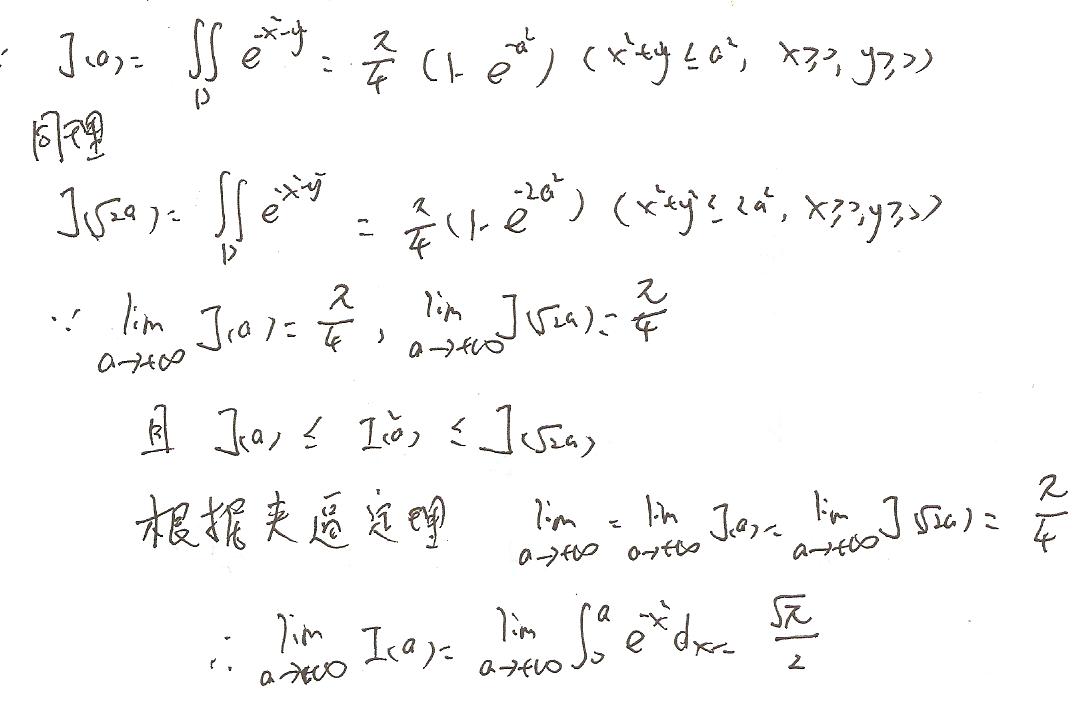 ∵ J(a)= ∬_D e^{-x²-y} = π/4 (1- e^{-a²}) (x²+y ≤ a², x≥0, y≥0)
同理
J(√2a)= ∬_D e^{-x²-y²} = π/4 (1- e^{-2a²}) (x²+y² ≤ 2a², x≥0, y≥0)
∵ lim_{a→+∞} J(a)= π/4, lim_{a→+∞} J(√2a)= π/4
且 J(a) ≤ I²(a) ≤ J(√2a)
根据夹逼定理 lim_{a→+∞} = lim_{a→+∞} J(a)= lim_{a→+∞} J(√2a)= π/4
∴ lim_{a→+∞} I(a)= lim_{a→+∞} ∫_0^a e^{-x²} dx= √π/2